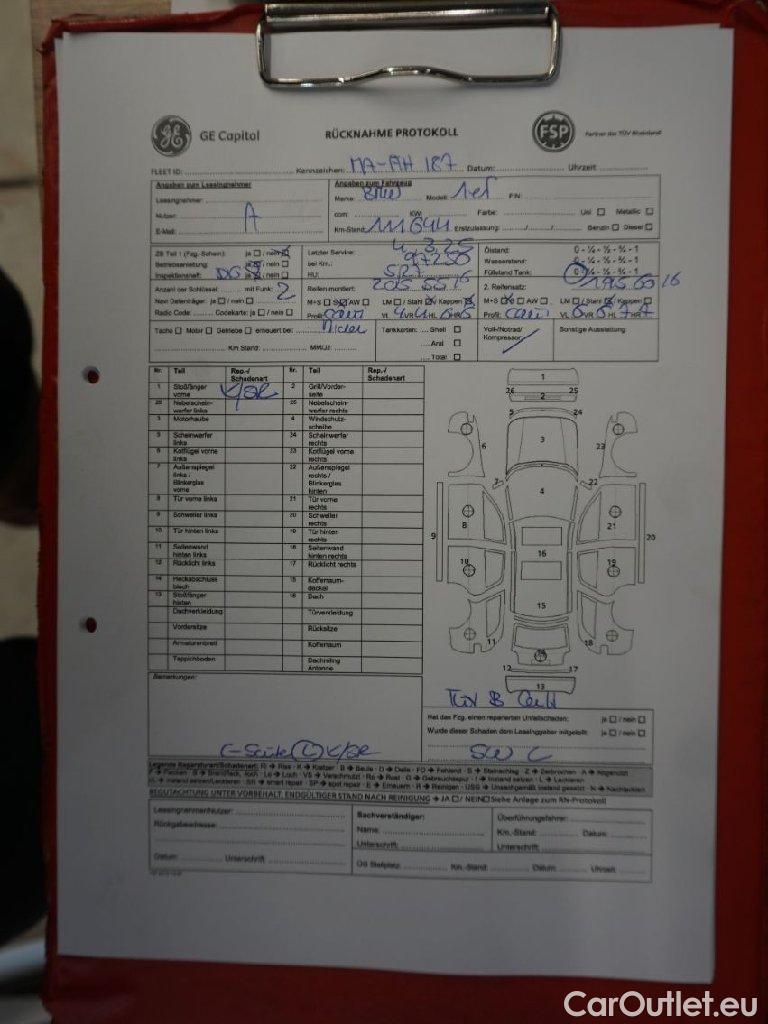 GE Capital RÜCKNAHME PROTOKOLL FSP Partner der TÜV Rheinland
FLEET ID: Kennzeichen: MA-AH 187 Datum: Uhrzeit
Angaben zum Leasingnehmer Angaben zum Fahrzeug
Leasingnehmer: Marke: BMW Modell: 1er FIN:
Nutzer: A com KW: Farbe: Uni Metallic
E-Mail: Km-Stand: 111644 Erstzulassung: / / Benzin Diesel
ZB Teil 1 (Fzg.-Schein): ja / nein Letzter Service: 4.3.25 Ölstand: 0 - ¼ - ½ - ¾ - 1
Betriebsanleitung: ja / nein bei Km.: 97250 Wasserstand: 0 - ¼ - ½ - ¾ - 1
Inspektionsheft: DGS ja / nein HU: Füllstand Tank: 0 - ¼ - ½ - ¾ - 1
Anzahl der Schlüssel: mit Funk: 2 Reifen montiert: 205 55 16 2. Reifensatz: 195 60 16
Navi Datenträger: ja / nein M+S AW LM / Stahl Kappen M+S AW LM / Stahl Kappen
Radio Code: Codekarte: ja / nein Profil: VL 4 VR 4 HL 6 HR 6 Profil: VL 6 VR 6 HL 7 HR 7
Tacho Motor Getriebe erneuert bei: Tankkarten: Shell Voll-/Notrad/ Kompressor Sonstige Ausstattung:
Aral
Km Stand: MM/JJ: Total
Nr. Teil Rep.-/ Schadenart Nr. Teil Rep.-/ Schadenart
1 Stoßfänger vorne K/SR 2 Grill/Vorderseite
26 Nebelscheinwerfer links 25 Nebelscheinwerfer rechts
3 Motorhaube 4 Windschutzscheibe
5 Scheinwerfer links 24 Scheinwerfer rechts
6 Kotflügel vorne links 23 Kotflügel vorne rechts
7 Außenspiegel links / Blinkerglas vorne 22 Außenspiegel rechts / Blinkerglas hinten
8 Tür vorne links 21 Tür vorne rechts
9 Schweller links 20 Schweller rechts
10 Tür hinten links 19 Tür hinten rechts
11 Seitenwand hinten links 18 Seitenwand hinten rechts
12 Rücklicht links 17 Rücklicht rechts
14 Heckabschlussblech 15 Kofferraumdeckel
13 Stoßfänger hinten 16 Dach
Dachverkleidung Türverkleidung
Vordersitze Rücksitze
Armaturenbrett Kofferraum
Teppichboden Dachreling Antenne
1
26 25
2
5 24
6 3 23
7 22
4
8 21
9 20
16
10 19
15
11 18
12 17
13
Bemerkungen:
TÜV B
Hat das Fzg. einen reparierten Unfallschaden: ja / nein
Wurde dieser Schaden dem Leasinggeber mitgeteilt: ja / nein
K/SR
Legende Reparaturart/Schadenart: Ri → Riss - K → Kratzer - B → Beule - D → Delle - FD → Fehlend - S → Steinschlag - Z → Zerbrochen - A → Abgenutzt
BEGUTACHTUNG UNTER VORBEHALT. ENDGÜLTIGER STAND NACH REINIGUNG → JA / NEIN Siehe Anlage zum RN-Protokoll
Leasingnehmer/Nutzer: Sachverständiger: Überführungsfahrer:
Rückgabeadresse: Name: Km.-Stand: Datum:
Unterschrift: Unterschrift:
Datum: Unterschrift: OS Stellplatz: Km.-Stand: Datum: Uhrzeit:
CarOutlet.eu